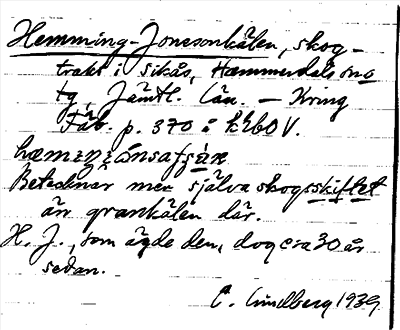 Hemming-Jonsonkälen, skog-
trakt i Sikås, Hammerdals sn o
tg, Jämtl. län. — Kring
Fäb. p. 370 å
Betecknar mer själva skogsskiftet
än grankälen där.
H. J., som ägde den, dog c:a 30 år
sedan.
C. Lindberg 1939